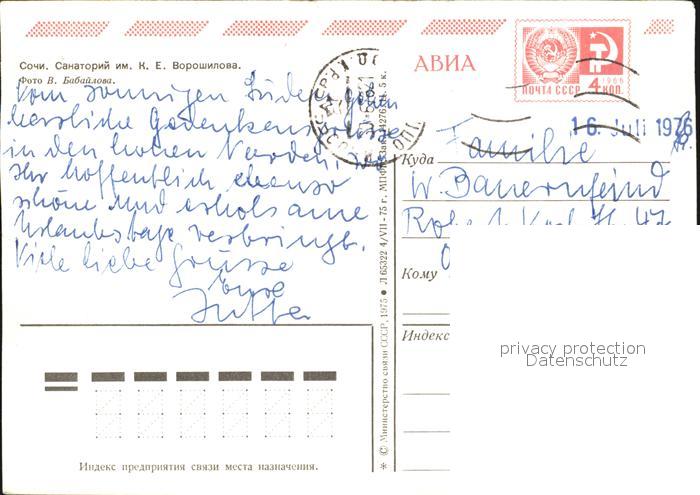 Сочи. Санаторий им. К. Е. Ворошилова.
Фото В. Бабайлова.
Vom sonnigen Süden
herzliche Gedenkensgrüsse
in den hohen Norden, wo
Ihr hoffentlich ebenso
schöne und erholsame
Urlaubstage verbringt.
Viele liebe Grüsse
Eure
Jutta
Индекс предприятия связи места назначения.
© Министерство связи СССР, 1975 • Л 65322 4/VII-75 г.
5 к.
АВИА
1966
ПОЧТА СССР 4 КОП.
16. Juli 1976
Куда
Familie
W. Bauernfeind
Кому
Индекс
privacy protection
Datenschutz